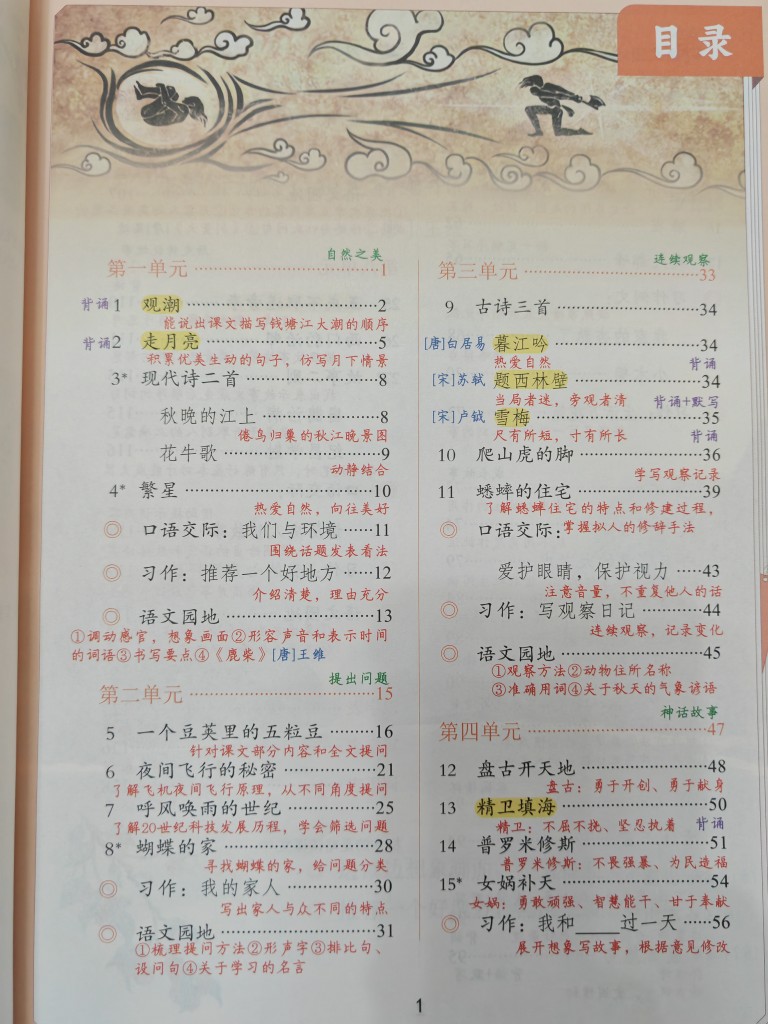 目录
自然之美
第一单元……1
背诵 1 观潮……2
能说出课文描写钱塘江大潮的顺序
背诵 2 走月亮……5
积累优美生动的句子，仿写月下情景
3* 现代诗二首……8
秋晚的江上……8
倦鸟归巢的秋江晚景图
花牛歌……9
动静结合
4* 繁星……10
热爱自然，向往美好
◎ 口语交际：我们与环境……11
围绕话题发表看法
◎ 习作：推荐一个好地方……12
介绍清楚，理由充分
◎ 语文园地……13
①调动感官，想象画面②形容声音和表示时间
的词语③书写要点④《鹿柴》[唐]王维
提出问题
第二单元……15
5 一个豆荚里的五粒豆……16
针对课文部分内容和全文提问
6 夜间飞行的秘密……21
了解飞机夜间飞行原理，从不同角度提问
7 呼风唤雨的世纪……25
了解20世纪科技发展历程，学会筛选问题
8* 蝴蝶的家……28
寻找蝴蝶的家，给问题分类
◎ 习作：我的家人……30
写出家人与众不同的特点
◎ 语文园地……31
①梳理提问方法②形声字③排比句、
设问句④关于学习的名言
连续观察
第三单元……33
9 古诗三首……34
[唐]白居易 暮江吟……34
热爱自然 背诵
[宋]苏轼 题西林壁……34
当局者迷，旁观者清 背诵+默写
[宋]卢钺 雪梅……35
尺有所短，寸有所长 背诵
10 爬山虎的脚……36
学写观察记录
11 蟋蟀的住宅……39
了解蟋蟀住宅的特点和修建过程，
◎ 口语交际：掌握拟人的修辞手法
爱护眼睛，保护视力……43
注意音量，不重复他人的话
◎ 习作：写观察日记……44
连续观察，记录变化
◎ 语文园地……45
①观察方法②动物住所名称
③准确用词④关于秋天的气象谚语
神话故事
第四单元……47
12 盘古开天地……48
盘古：勇于开创、勇于献身
13 精卫填海……50
精卫：不屈不挠、坚忍执着 背诵
14 普罗米修斯……51
普罗米修斯：不畏强暴、为民造福
15* 女娲补天……54
女娲：勇敢顽强、智慧能干、甘于奉献
◎ 习作：我和____过一天……56
展开想象写故事，根据意见修改
1